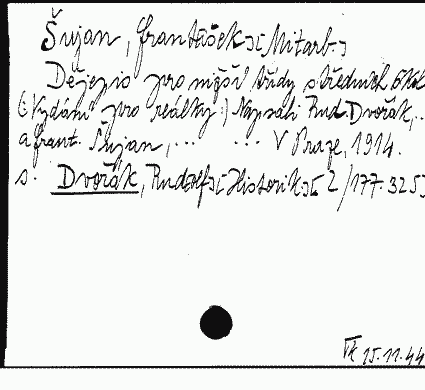 Šujan, František [Mitarb.]
Dějepis pro nižší třídy středních škol
(: Vydání pro reálky :) Napsali Rud. Dvořák, ..
a Frant. Šujan, ... ... V Praze, 1914.
s. Dvořák, Rudolf [Historik] [2/177.325]
15.11.44